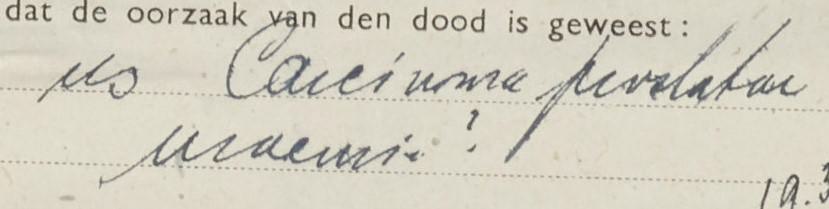 dat de oorzaak van den dood is geweest:
Carcinoma prostatae
uraemie?
19.3